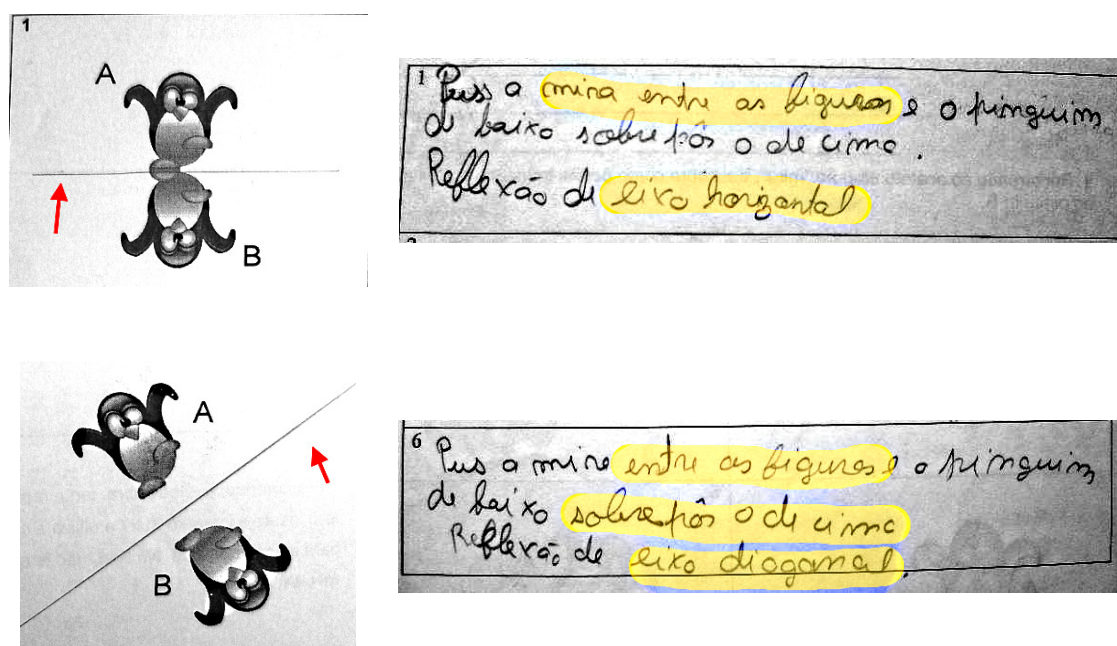 1
A
B
1 Pus a mira entre as figuras e o pinguim
de baixo sobrepôs o de cima.
Reflexão de eixo horizontal
A
B
6 Pus a mira entre as figuras e o pinguim
de baixo sobrepôs o de cima
Reflexão de eixo diagonal.